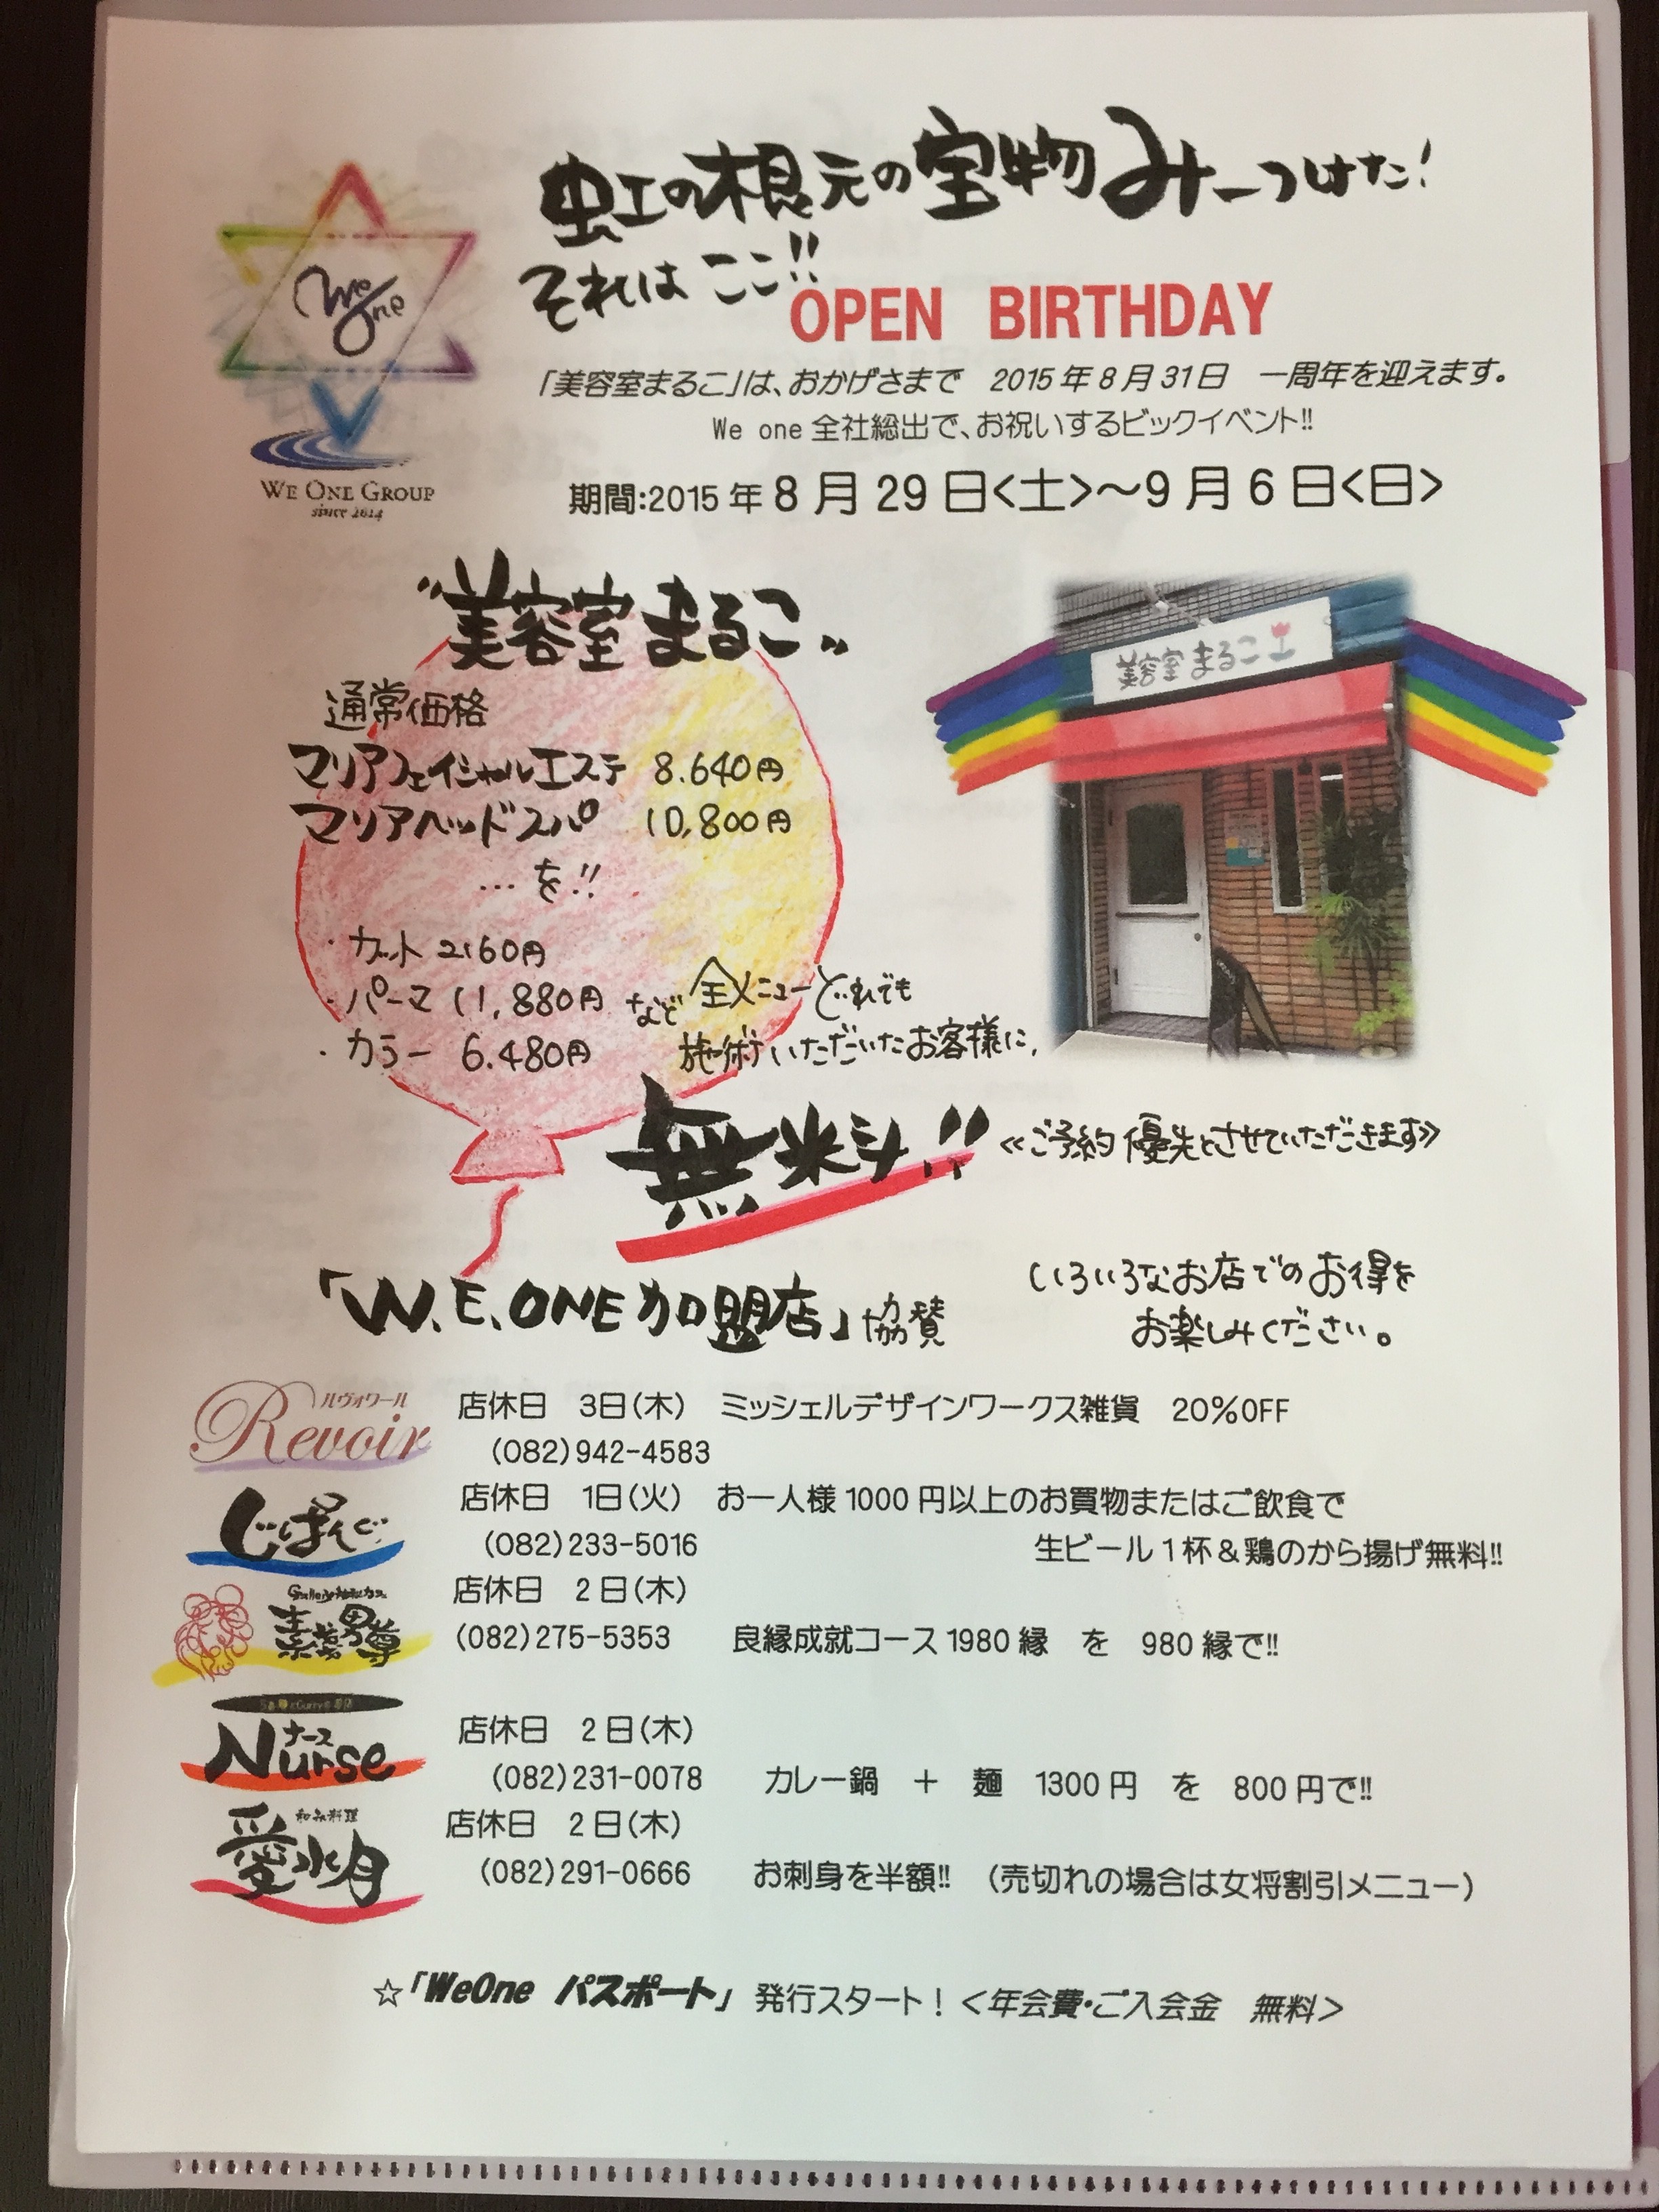 虹の根元の宝物みーつけた!
それはここ!!
OPEN BIRTHDAY
We One
WE ONE GROUP
since 2014
「美容室まるこ」は、おかげさまで 2015年8月31日 一周年を迎えます。
We one 全社総出で、お祝いするビックイベント!!
期間:2015年8月29日<土>～9月6日<日>
"美容室まるこ"
美容室まるこ
通常価格
マリアフェイシャルエステ 8.640円
マリアヘッドスパ 10,800円
…を!!
・カット 2160円
・パーマ 11,880円 など 全メニューどれでも
・カラー 6.480円 施術いただいたお客様に、
無料!! ≪ご予約優先とさせていただきます≫
「W.E.ONE加盟店」協賛
いろいろなお店でのお得を
お楽しみください。
ルヴォワール
Revoir
店休日 3日(木) ミッシェルデザインワークス雑貨 20%OFF
(082)942-4583
じぱんぐ
店休日 1日(火) お一人様1000円以上のお買物またはご飲食で
(082)233-5016 生ビール1杯&鶏のから揚げ無料!!
店休日 2日(木)
(082)275-5353 良縁成就コース1980縁 を 980縁で!!
ナース
Nurse
店休日 2日(木)
(082)231-0078 カレー鍋 + 麺 1300円 を 800円で!!
和み料理
愛水月
店休日 2日(木)
(082)291-0666 お刺身を半額!! (売切れの場合は女将割引メニュー)
☆「WeOne パスポート」 発行スタート! <年会費・ご入会金 無料>